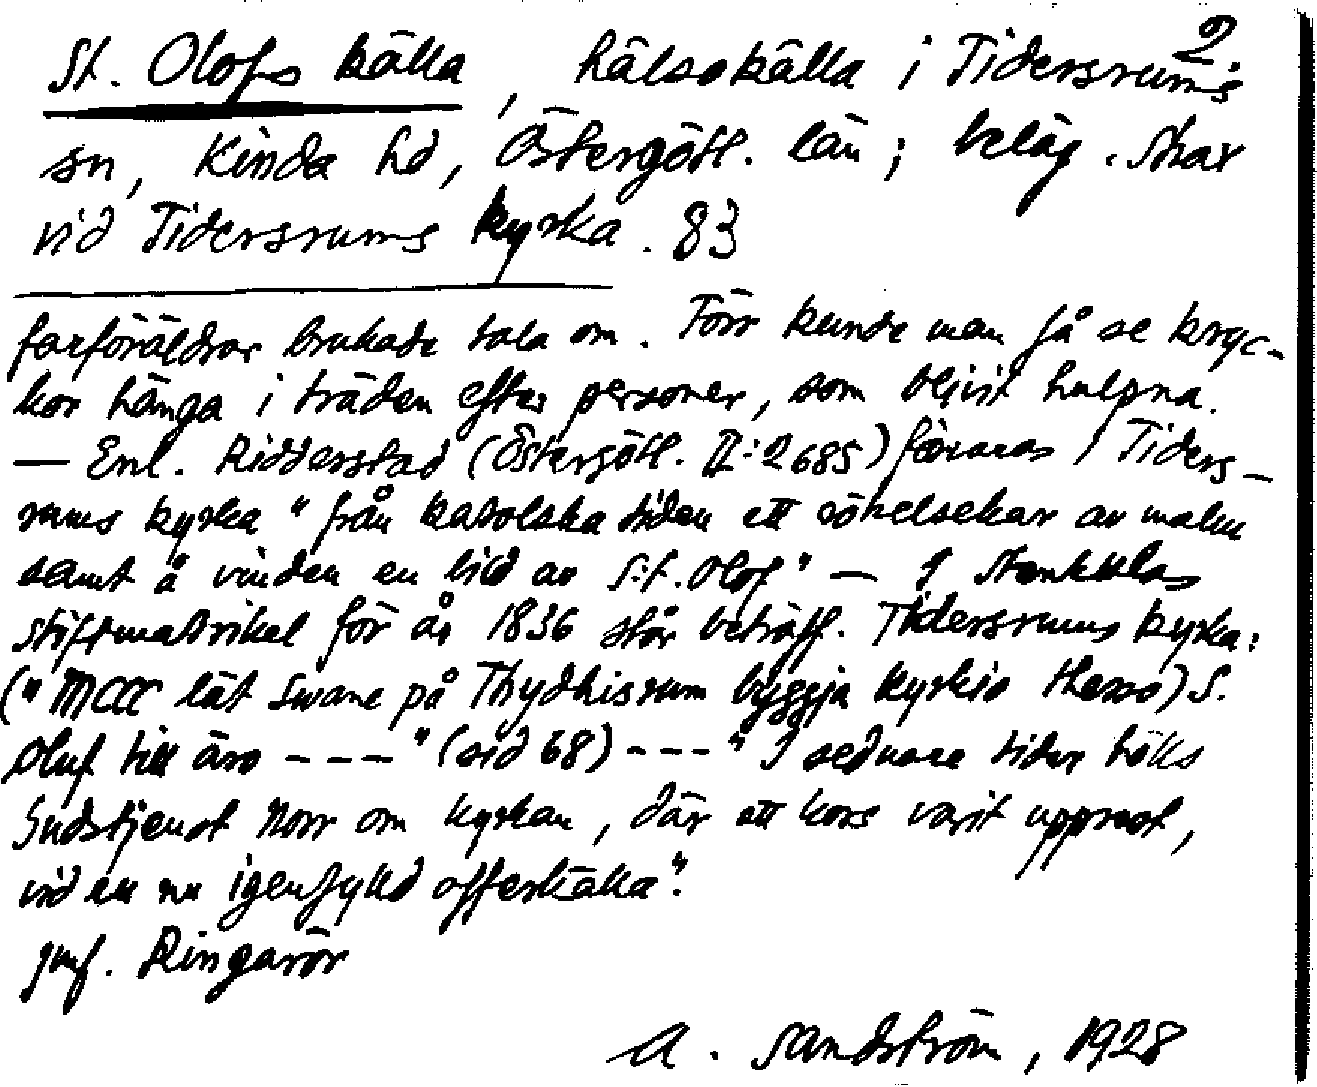 2.
St. Olofs källa, hälsokälla i Tidersrums
sn, Kinda hd, Östergötl. län; beläg. strax
vid Tidersrums kyrka. 83
farföräldrar brukade tala om. Förr kunde man få se kryc-
kor hänga i träden efter personer, som blivit hulpna.
— Enl. Ridderstad (Östergötl. II:2 685) förvaras i Tiders-
rums kyrka "från katolska tiden ett rökelsekar av malm
samt å vinden en bild av S:t. Olof" — I
stiftmatrikel för år 1836 står beträff. Tidersrums kyrka:
("MCCC lät Swane på Thydhisrum byggja kyrkio S.
Oluf till äro - - - " (sid 68) - - - " I sednare tider hölls
Gudstjenst Norr om kyrkan, där ett kors varit upprest,
vid en nu igenfylld offerkälla".
jmf. Ringarör
A. Sandström, 1928